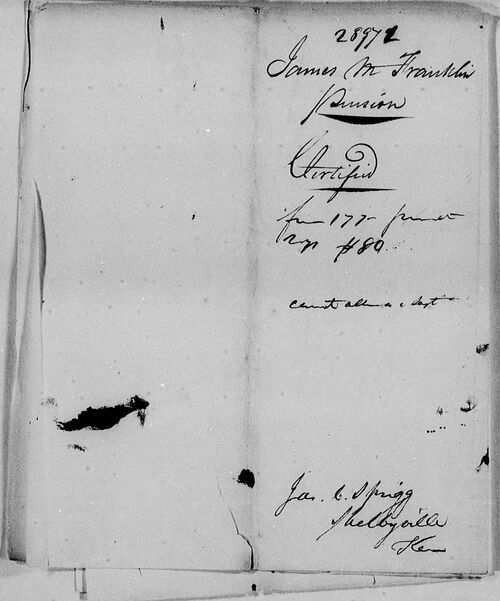 28972
James M Franklin
Pension
Certified
for 177
$80
cannot allow as Capt
Jas. C. Sprigg
Shelbyville
Ken